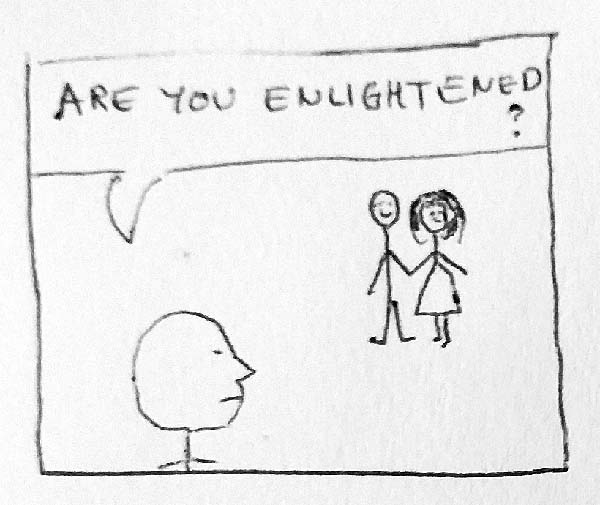 ARE YOU ENLIGHTENED
?